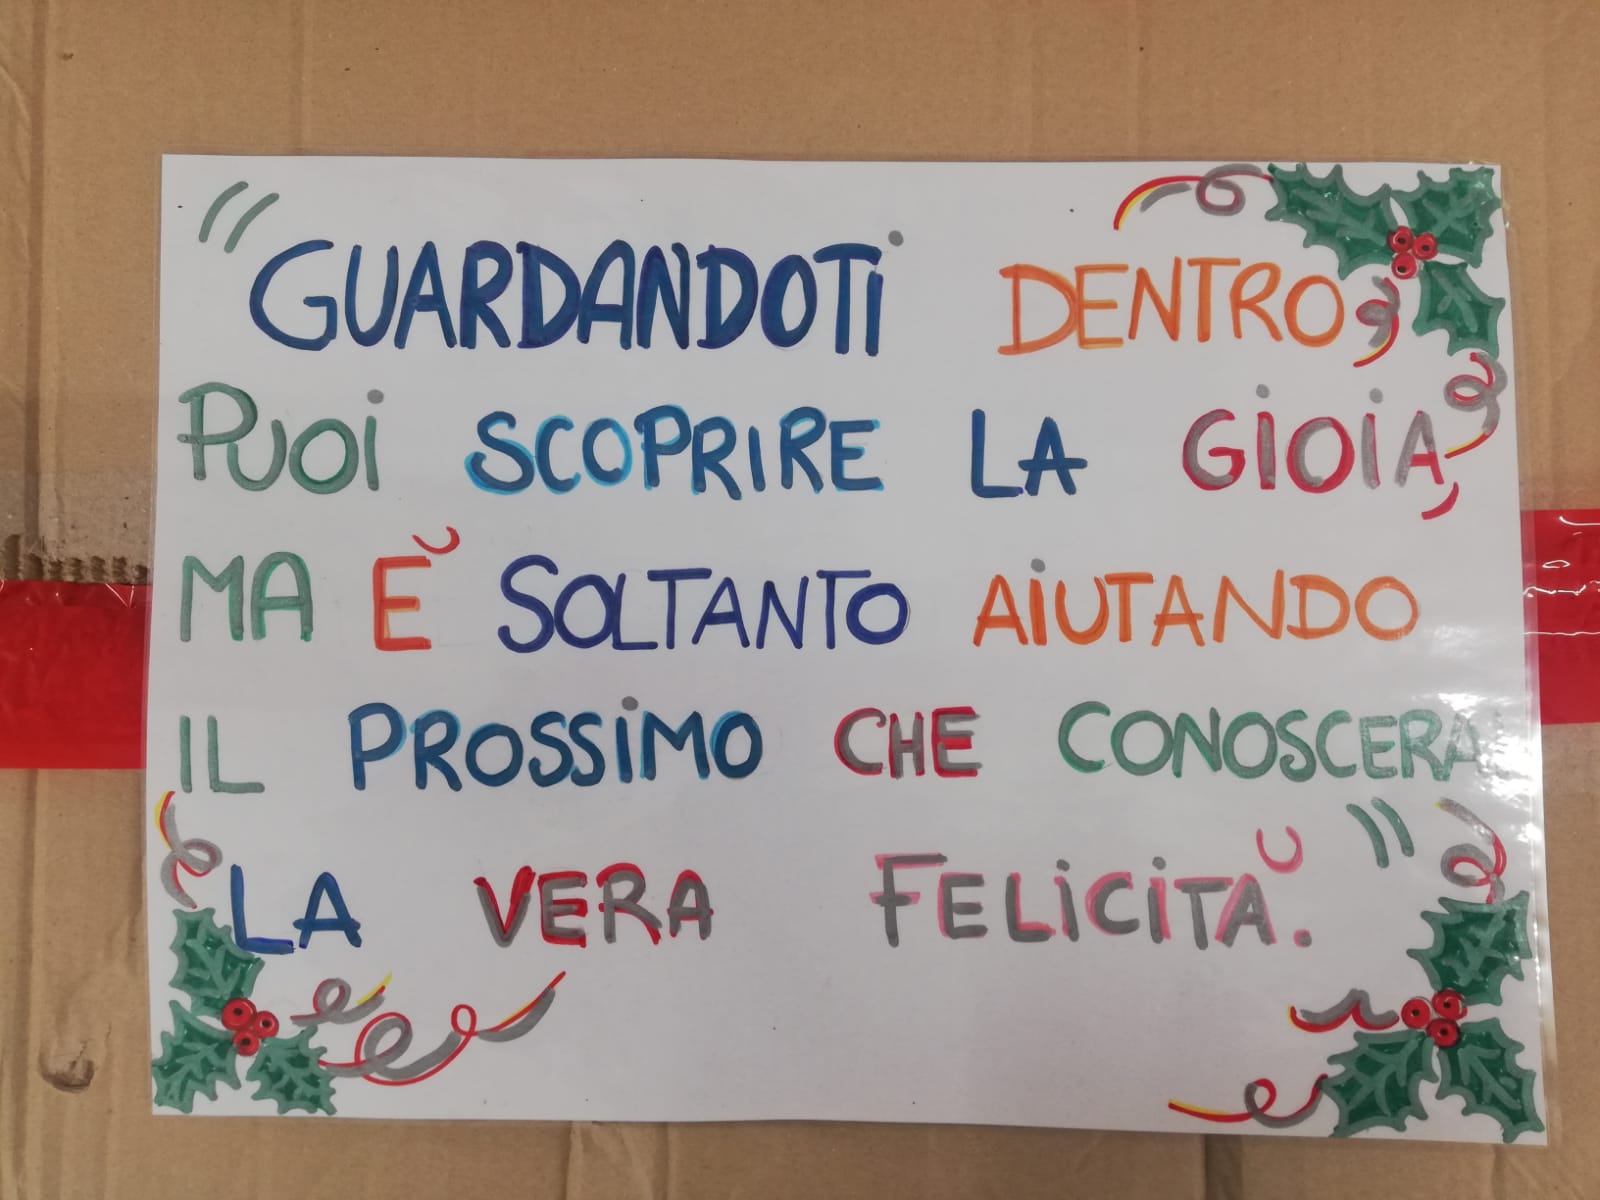 "GUARDANDOTI DENTRO
PUOI SCOPRIRE LA GIOIA,
MA È SOLTANTO AIUTANDO
IL PROSSIMO CHE CONOSCERA'
LA VERA FELICITÀ."